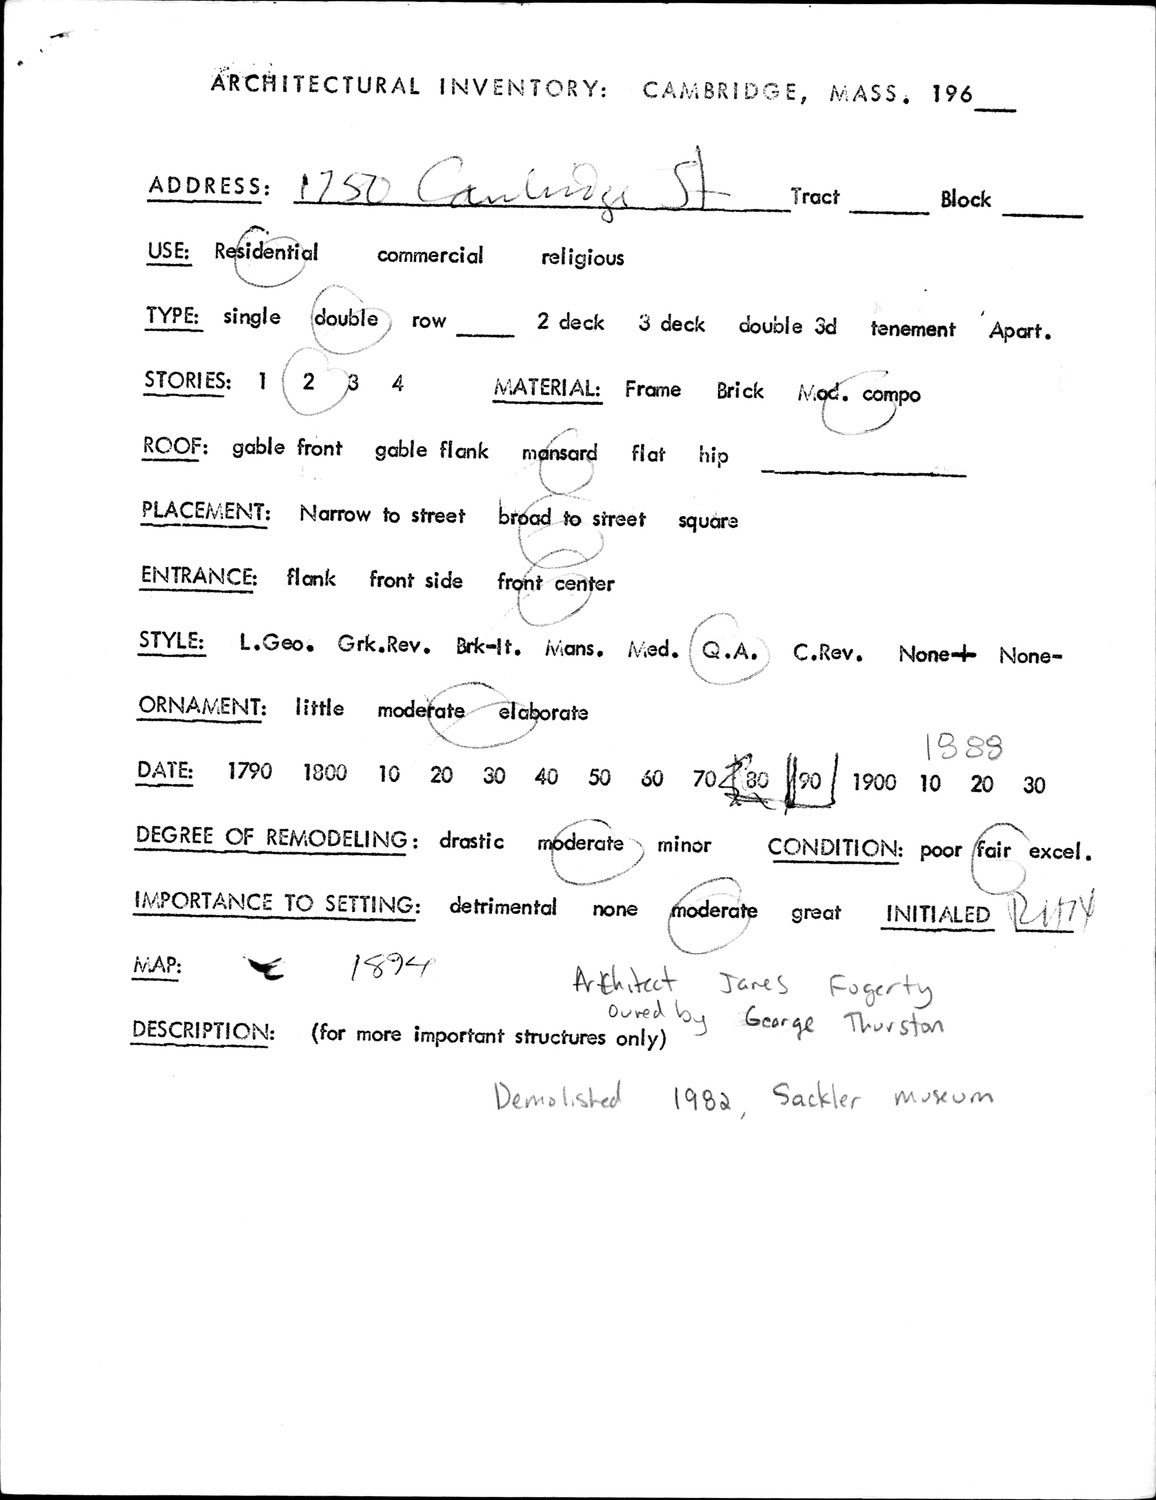 ARCHITECTURAL INVENTORY: CAMBRIDGE, MASS. 196___
ADDRESS: 1750 Cambridge St Tract ______ Block ______
USE: Residential commercial religious
TYPE: single double row ____ 2 deck 3 deck double 3d tenement Apart.
STORIES: 1 2 3 4 MATERIAL: Frame Brick Mod. compo
ROOF: gable front gable flank mansard flat hip ______________
PLACEMENT: Narrow to street broad to street square
ENTRANCE: flank front side front center
STYLE: L.Geo. Grk.Rev. Brk-It. Mans. Med. Q.A. C.Rev. None+ None-
ORNAMENT: little moderate elaborate
1888
DATE: 1790 1800 10 20 30 40 50 60 70 80 90 1900 10 20 30
DEGREE OF REMODELING: drastic moderate minor CONDITION: poor fair excel.
IMPORTANCE TO SETTING: detrimental none moderate great INITIALED
MAP: 1894 Architect James Fogerty
owned by George Thurston
DESCRIPTION: (for more important structures only)
Demolished 1982, Sackler museum